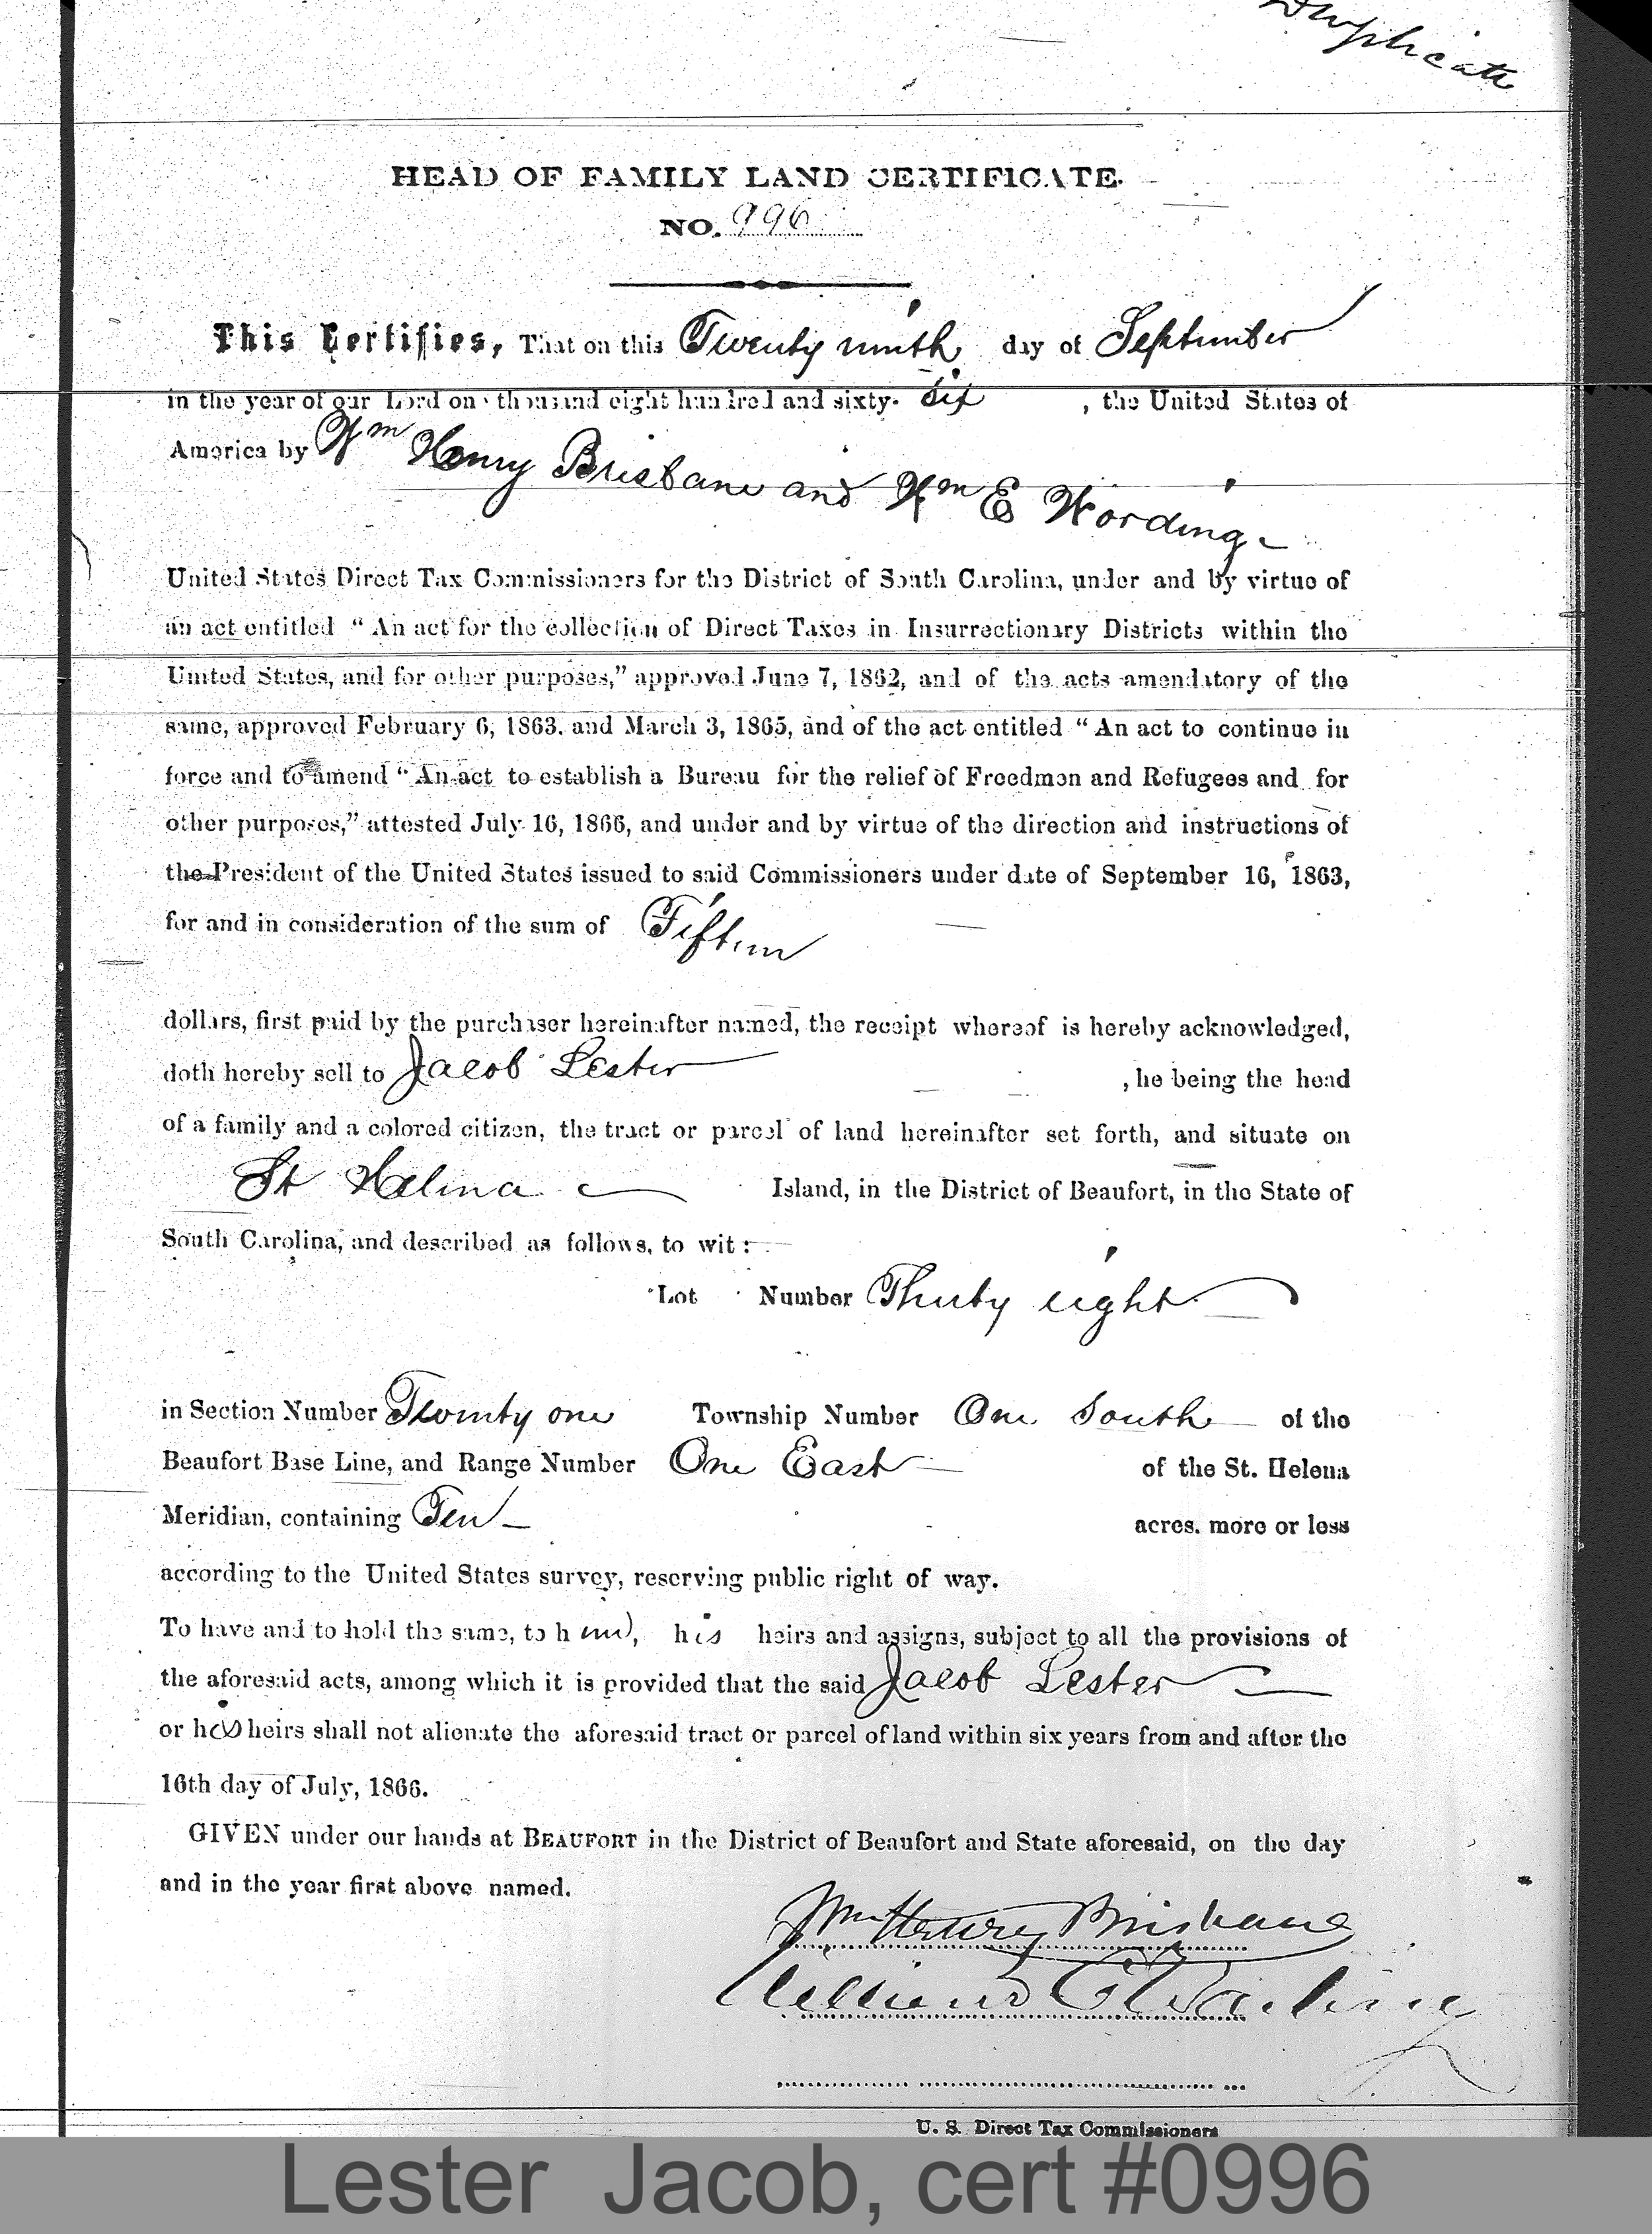 Duplicate
HEAD OF FAMILY LAND CERTIFICATE.
NO. 996
This Certifies, That on this Twenty ninth day of September
in the year of our Lord one thousand eight hundred and sixty- six , the United States of
America by Wm Henry Brisbane and Wm E Wording
United States Direct Tax Commissioners for the District of South Carolina, under and by virtue of
an act entitled "An act for the collection of Direct Taxes in Insurrectionary Districts within the
United States, and for other purposes," approved June 7, 1862, and of the acts amendatory of the
same, approved February 6, 1863, and March 3, 1865, and of the act entitled "An act to continue in
force and to amend "An act to establish a Bureau for the relief of Freedmen and Refugees and for
other purposes," attested July 16, 1866, and under and by virtue of the direction and instructions of
the President of the United States issued to said Commissioners under date of September 16, 1863,
for and in consideration of the sum of Fifteen
dollars, first paid by the purchaser hereinafter named, the receipt whereof is hereby acknowledged,
doth hereby sell to Jacob Lester , he being the head
of a family and a colored citizen, the tract or parcel of land hereinafter set forth, and situate on
St Helena Island, in the District of Beaufort, in the State of
South Carolina, and described as follows, to wit:
Lot Number Thirty eight
in Section Number Twenty one Township Number One South of the
Beaufort Base Line, and Range Number One East of the St. Helena
Meridian, containing Ten acres, more or less
according to the United States survey, reserving public right of way.
To have and to hold the same, to him, his heirs and assigns, subject to all the provisions of
the aforesaid acts, among which it is provided that the said Jacob Lester
or his heirs shall not alienate the aforesaid tract or parcel of land within six years from and after the
16th day of July, 1866.
GIVEN under our hands at BEAUFORT in the District of Beaufort and State aforesaid, on the day
and in the year first above named.
Wm Henry Brisbane
William E Wording
U. S. Direct Tax Commissioners
Lester Jacob, cert #0996